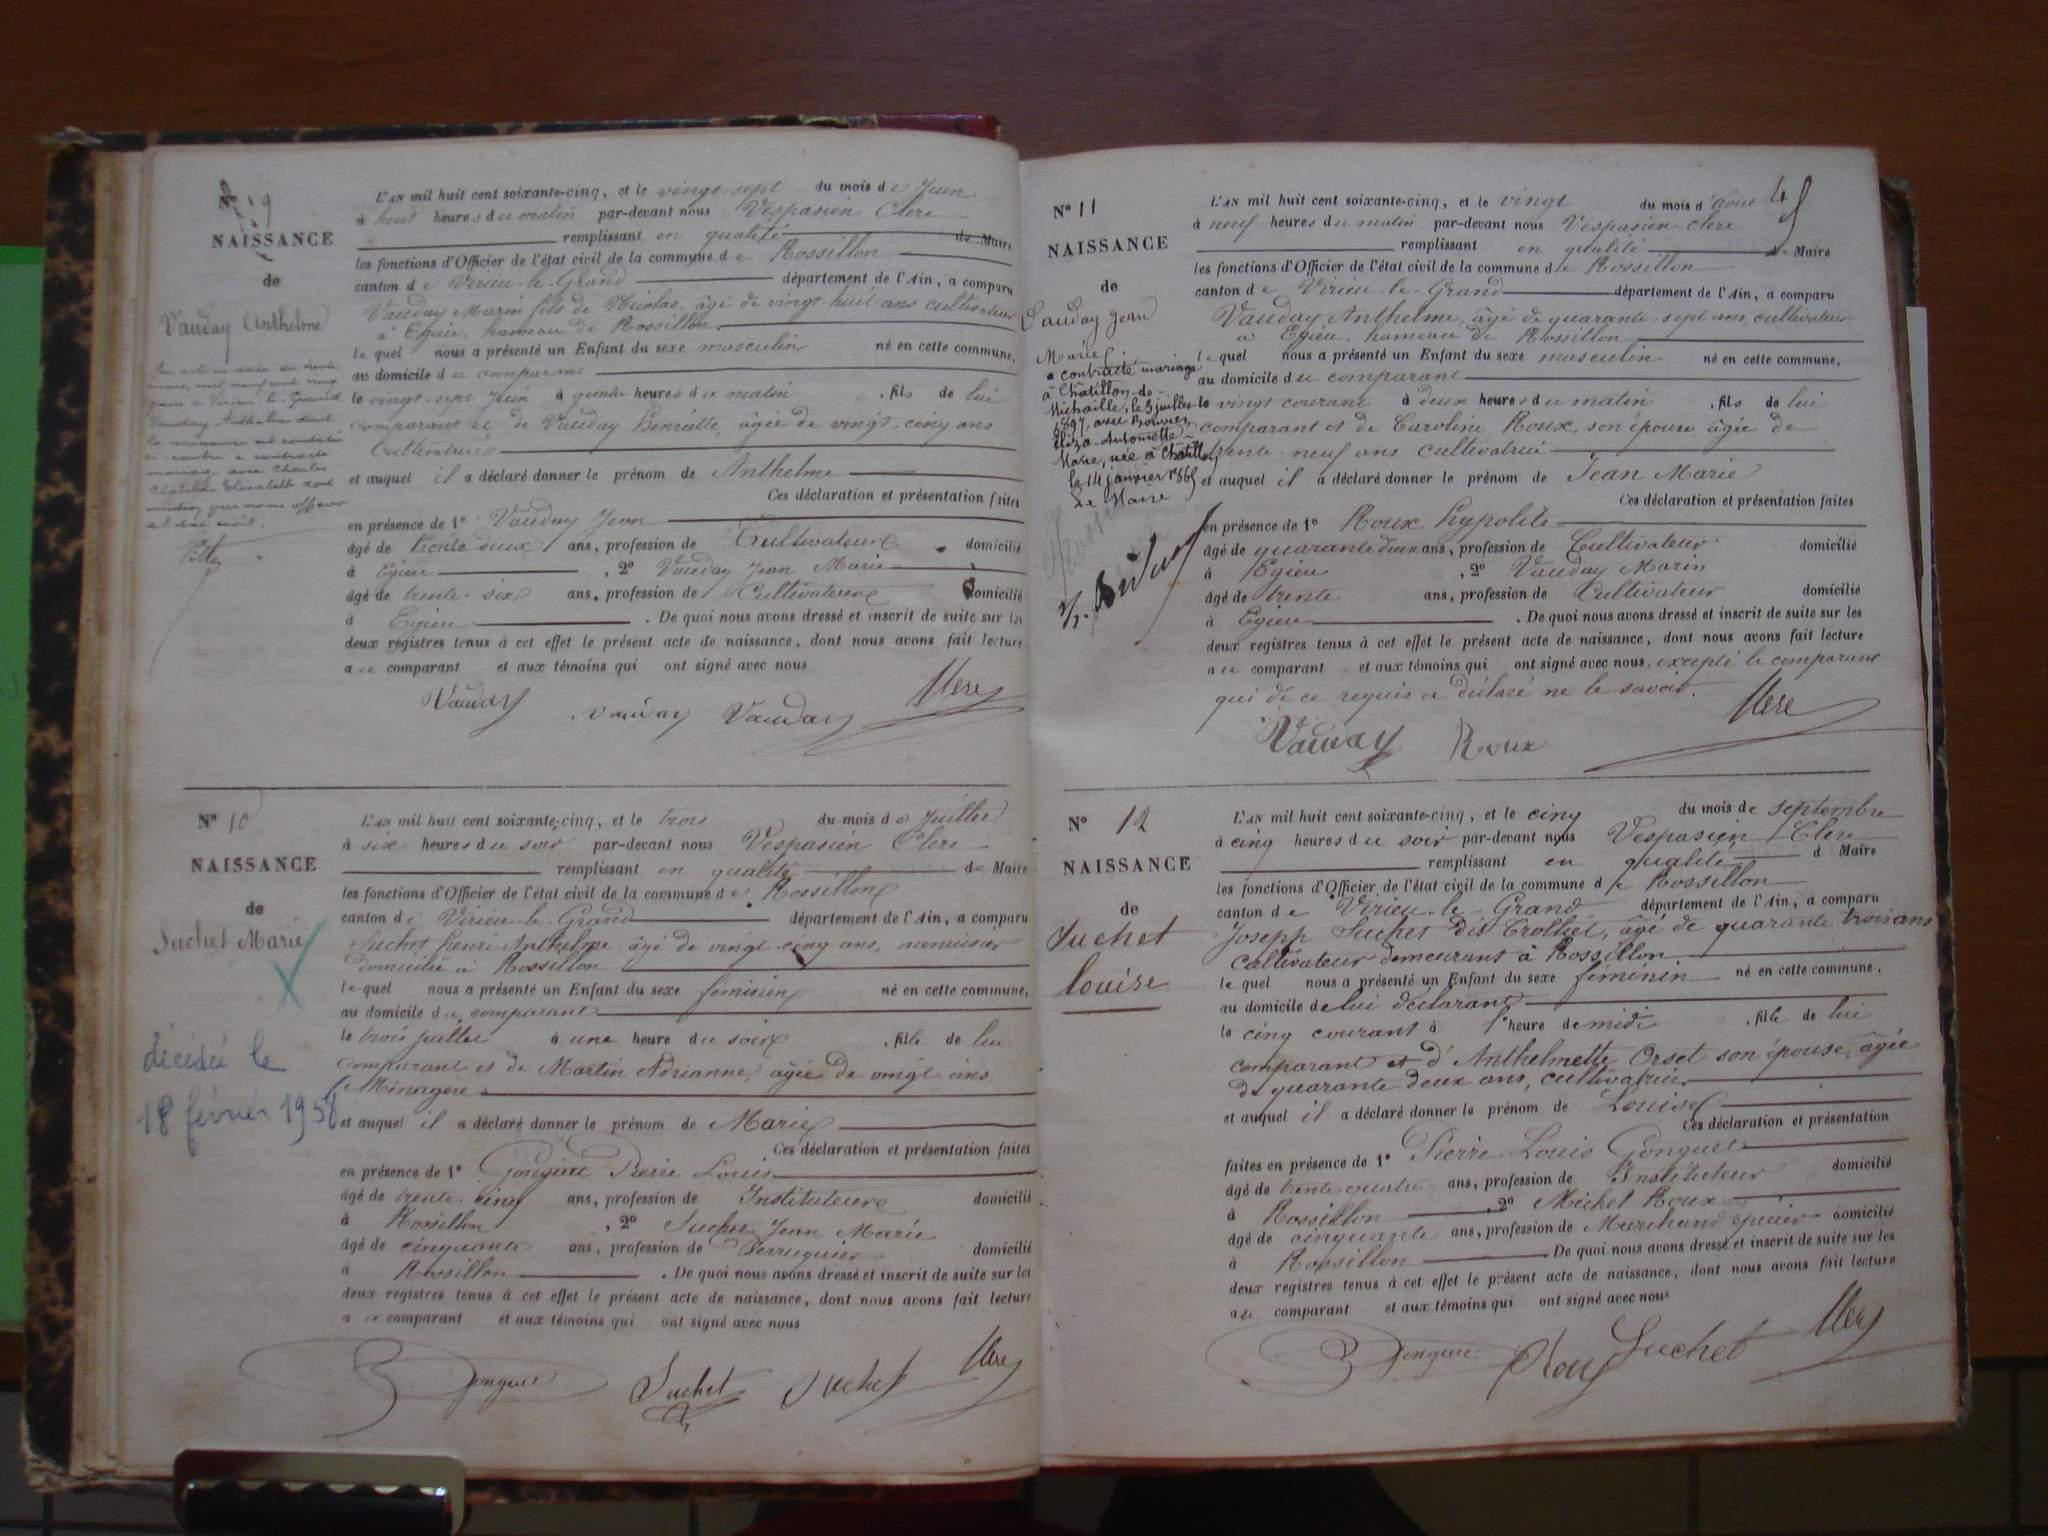 N° 9
NAISSANCE
de
Vauday Anthelme
L'AN mil huit cent soixante-cinq, et le vingt-sept du mois de Juin
à huit heures du matin par-devant nous Vespasien Clerc
remplissant en qualité de Maire
les fonctions d'Officier de l'état civil de la commune de Rossillon
canton de Virieu-le-Grand département de l'Ain, a comparu
Vauday Marin fils de Nicolas, âgé de vingt-huit ans cultivateur
à Egieu, hameau de Rossillon
lequel nous a présenté un Enfant du sexe masculin né en cette commune,
au domicile du comparant
le vingt-sept Juin à quatre heures du matin, fils de lui
comparant et de Vauday Henriette, âgée de vingt-cinq ans
Cultivatrice
et auquel il a déclaré donner le prénom de Anthelme
Ces déclaration et présentation faites
en présence de 1° Vauday Jean
âgé de trente deux ans, profession de Cultivateur domicilié
à Egieu, 2° Vauday Jean Marie
âgé de trente-six ans, profession de Cultivateur domicilié
à Egieu. De quoi nous avons dressé et inscrit de suite sur les
deux registres tenus à cet effet le présent acte de naissance, dont nous avons fait lecture
au comparant et aux témoins qui ont signé avec nous
Vauday Vauday Vauday Clerc
N° 10
NAISSANCE
de
Suchet Marie
décédée le
18 février 1958
L'AN mil huit cent soixante-cinq, et le trois du mois de Juillet
à six heures du soir par-devant nous Vespasien Clerc
remplissant en qualité de Maire
les fonctions d'Officier de l'état civil de la commune de Rossillon
canton de Virieu-le-Grand département de l'Ain, a comparu
Suchet Henri Anthelme âgé de vingt-cinq ans, menuisier
domicilié à Rossillon
lequel nous a présenté un Enfant du sexe féminin né en cette commune,
au domicile du comparant
le trois juillet à une heure du soir, fille de lui
comparant et de Martin Adrianne, âgée de vingt ans
Ménagère
et auquel il a déclaré donner le prénom de Marie
Ces déclaration et présentation faites
en présence de 1° Gonguet Pierre Louis
âgé de trente-cinq ans, profession de Instituteur domicilié
à Rossillon, 2° Suchet Jean Marie
âgé de cinquante ans, profession de Perruquier domicilié
à Rossillon. De quoi nous avons dressé et inscrit de suite sur les
deux registres tenus à cet effet le présent acte de naissance, dont nous avons fait lecture
au comparant et aux témoins qui ont signé avec nous
Gonguet Suchet Suchet Clerc
N° 11
NAISSANCE
de
Vauday Jean
Marie
a contracté mariage
à Châtillon-de-
Michaille, le 3 juillet
1897, avec Bouvier
Eliza-Antoinette-
Marie, née à Châtillon
le 14 janvier 1865
Le Maire
L'AN mil huit cent soixante-cinq, et le vingt du mois d'Août
à neuf heures du matin par-devant nous Vespasien Clerc
remplissant en qualité de Maire
les fonctions d'Officier de l'état civil de la commune de Rossillon
canton de Virieu-le-Grand département de l'Ain, a comparu
Vauday Anthelme, âgé de quarante-sept ans, cultivateur
à Egieu, hameau de Rossillon
lequel nous a présenté un Enfant du sexe masculin né en cette commune,
au domicile du comparant
le vingt courant à deux heures du matin, fils de lui
comparant et de Caroline Roux, son épouse âgée de
trente-neuf ans cultivatrice
et auquel il a déclaré donner le prénom de Jean Marie
Ces déclaration et présentation faites
en présence de 1° Roux Hypolite
âgé de quarante deux ans, profession de Cultivateur domicilié
à Egieu, 2° Vauday Marin
âgé de trente ans, profession de Cultivateur domicilié
à Egieu. De quoi nous avons dressé et inscrit de suite sur les
deux registres tenus à cet effet le présent acte de naissance, dont nous avons fait lecture
au comparant et aux témoins qui ont signé avec nous, excepté le comparant
qui de ce requis a déclaré ne le savoir. Clerc
Vauday Roux
N° 12
NAISSANCE
de
Suchet
Louise
L'AN mil huit cent soixante-cinq, et le cinq du mois de septembre
à cinq heures du soir par-devant nous Vespasien Clerc
remplissant en qualité d Maire
les fonctions d'Officier de l'état civil de la commune de Rossillon
canton de Virieu-le-Grand département de l'Ain, a comparu
Joseph Suchet dit Trolliet, âgé de quarante trois ans
cultivateur demeurant à Rossillon
lequel nous a présenté un Enfant du sexe féminin né en cette commune,
au domicile de lui déclarant
le cinq courant à l'heure de midi, fille de lui
comparant et d'Anthelmette Orset son épouse, âgée
de quarante deux ans, cultivatrice
et auquel il a déclaré donner le prénom de Louise
Ces déclaration et présentation
faites en présence de 1° Pierre Louis Gonguet
âgé de trente quatre ans, profession de Instituteur domicilié
à Rossillon, 2° Michel Roux
âgé de cinquante ans, profession de Marchand épicier domicilié
à Rossillon. De quoi nous avons dressé et inscrit de suite sur les
deux registres tenus à cet effet le présent acte de naissance, dont nous avons fait lecture
au comparant et aux témoins qui ont signé avec nous
Gonguet Roux Suchet Clerc